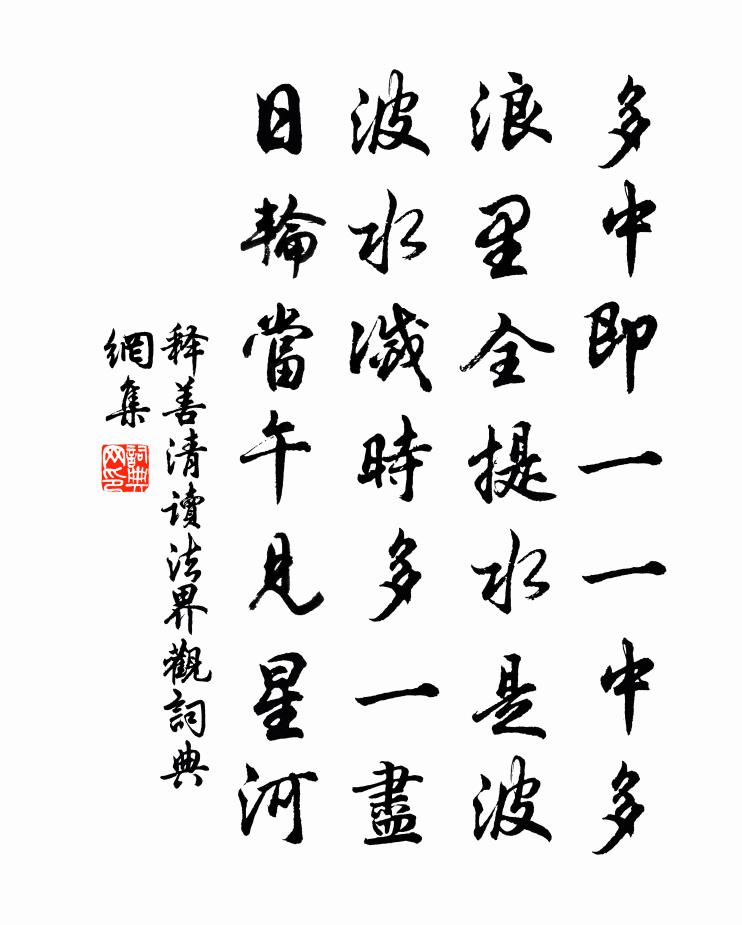 多中即一一中多
浪里全提水是波
波水滅時多一盡
日輪當午見星河
释善清讀法界觀詞典
網集
詞典
网印